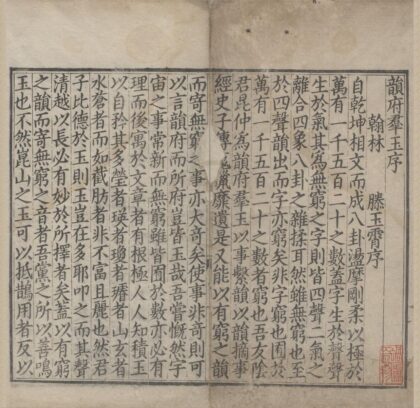 韻府羣玉序
翰林 滕玉霄序
自乾坤相文而成八卦盪摩剛柔以極於
萬有一千五百二十之數蓋字生於聲聲
生於氣其為無窮之字則皆四聲二氣之
離合四象八卦之雜揉耳然雖無窮也至
於四聲韻出而字亦窮矣非字窮也囿於
萬有一千五百二十之數者窮也吾友陰
君昆仲為韻府羣玉以事繫韻以韻摘事
經史子傳蒐獵靡遺是又能以有窮之韻
而寄無窮之事亦大奇矣使事非奇則可
以言韻府而所府豈皆玉哉吾嘗慨然宇
宙之事常新而無窮雖皆囿於數亦必有
理而後寓於文章者有根極人人知積玉
以自矜其多瑩者瑛者瓊者瑨者山玄者
水蒼者而如截肪者非不富且麗也然君
子比德於玉則玉豈在多耶叩之而其聲
清越以長必有妙於所擇者矣蓋以有窮
之韻而寄無窮之音者吾黨之所以善鳴
玉也不然崑山之玉可以抵鵲用者反以